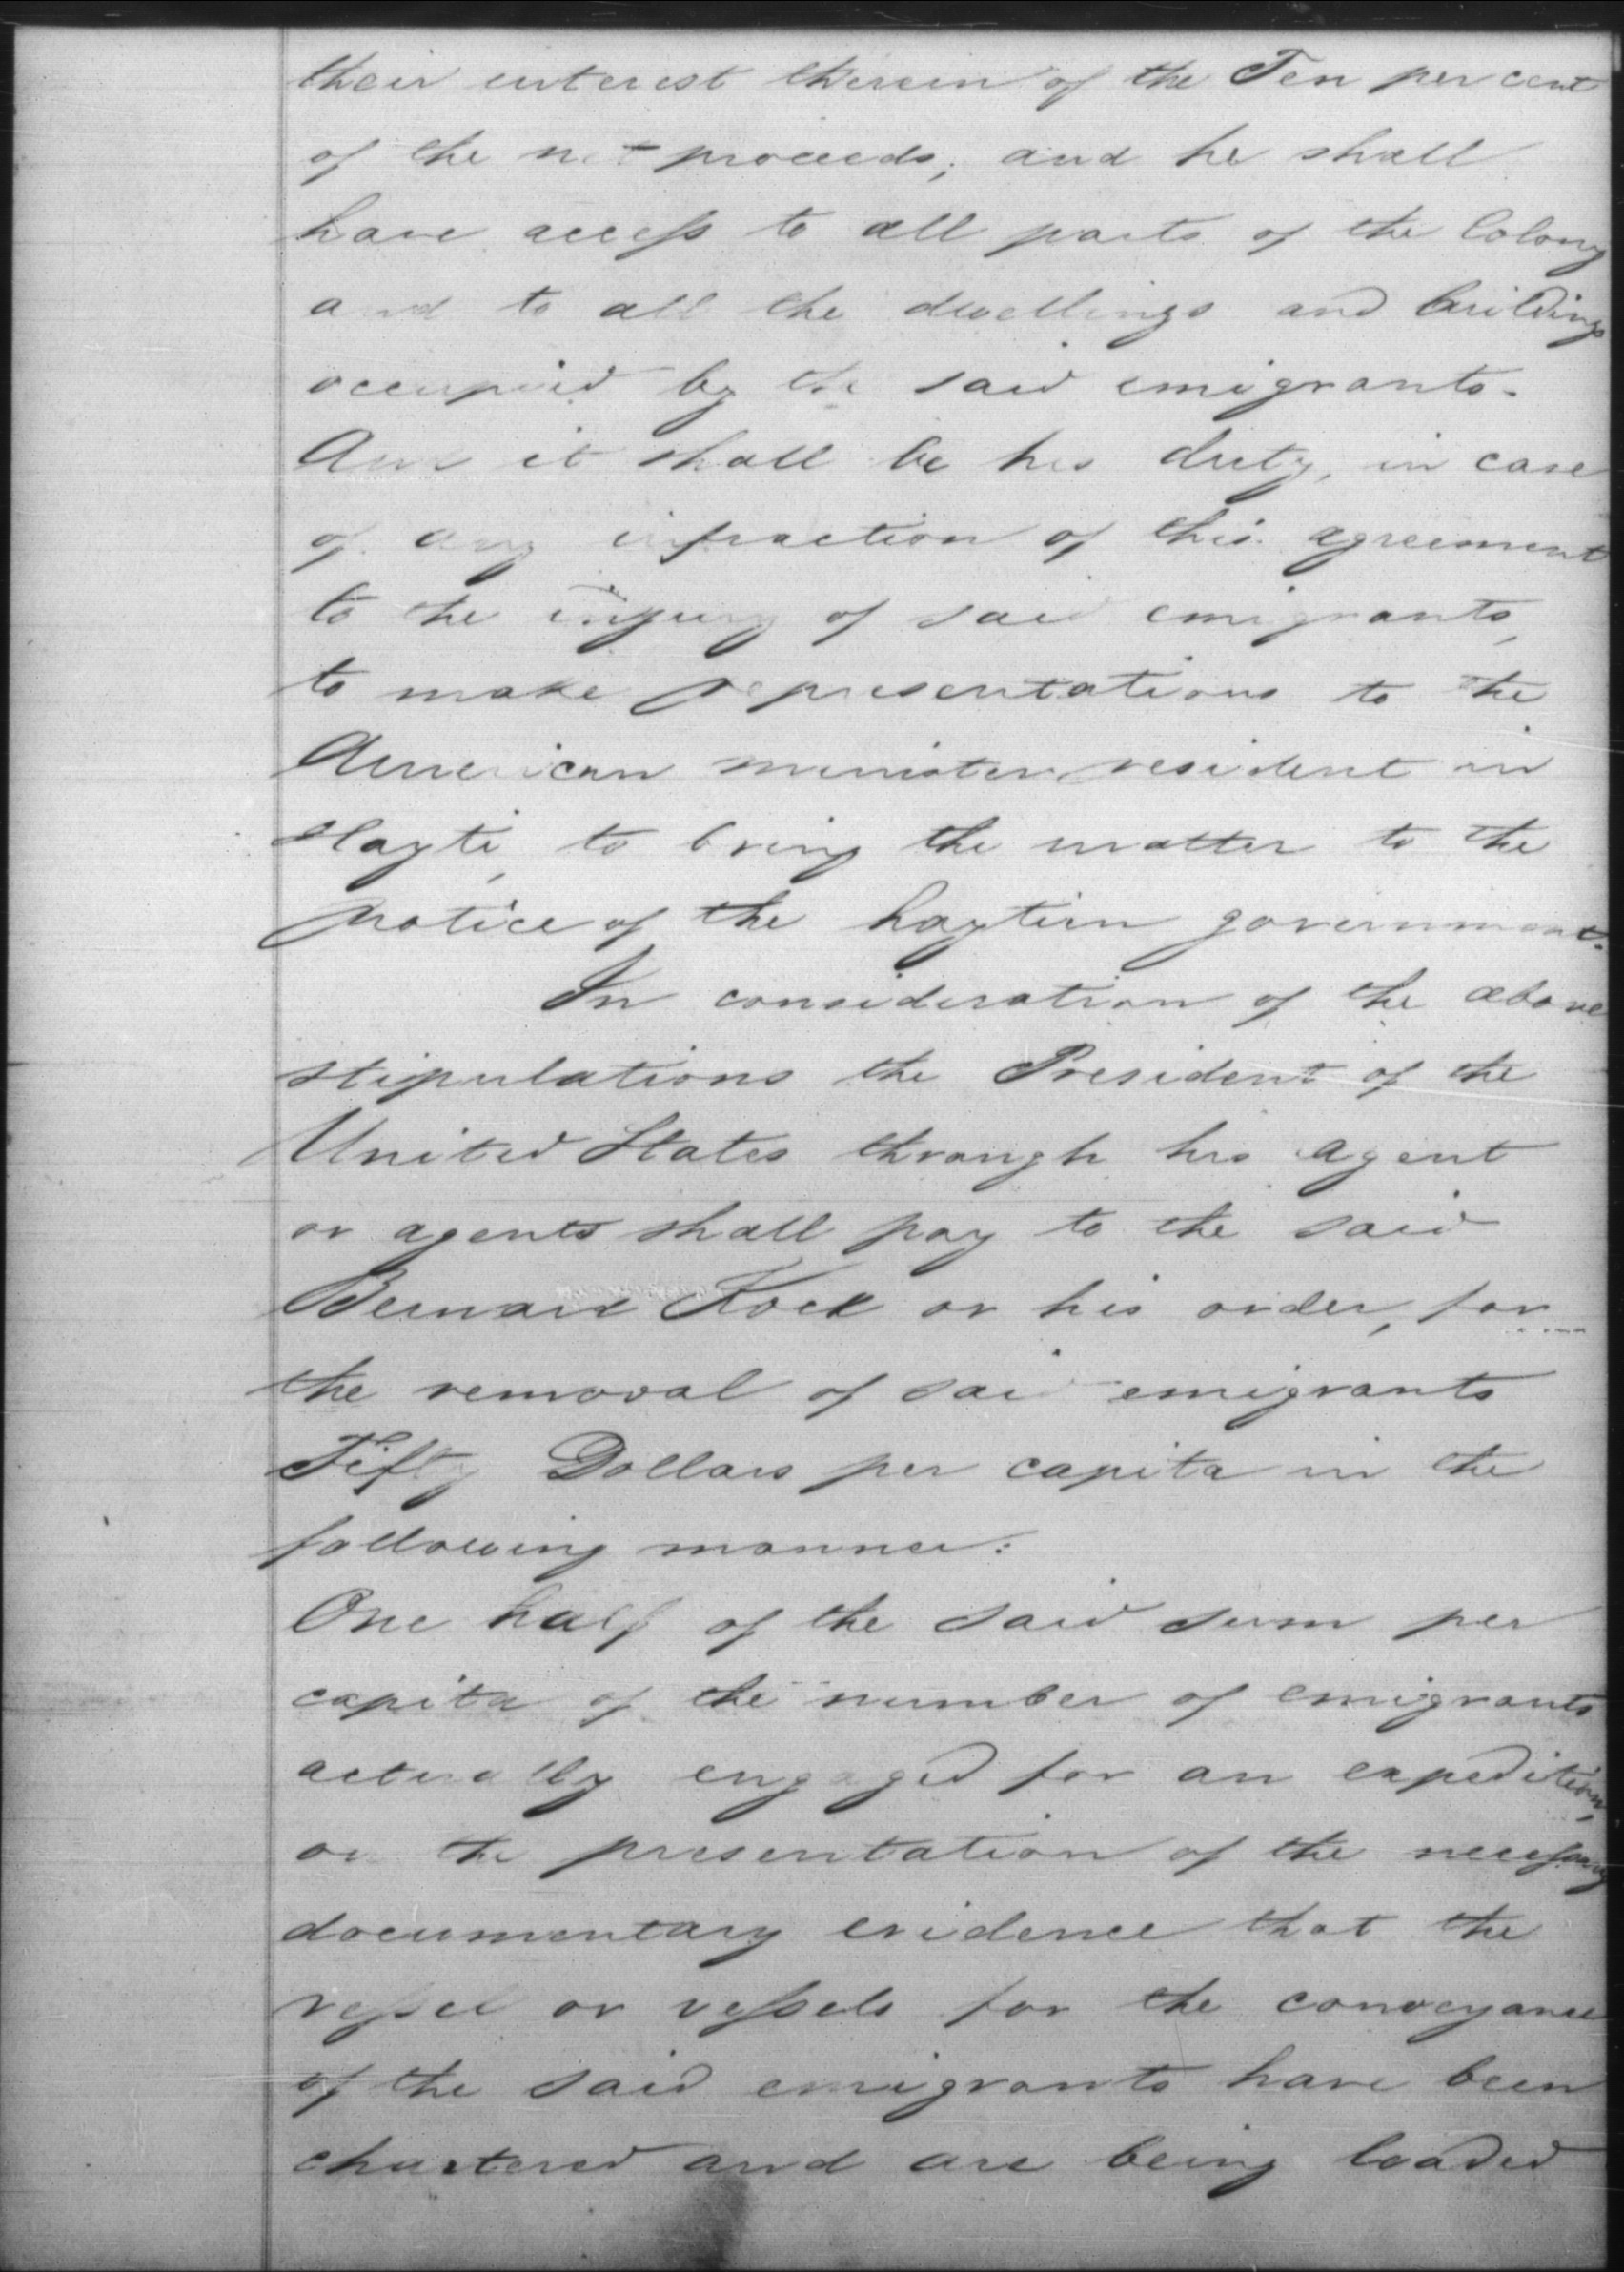 their interest therein of the Ten per cent
of the net proceeds; and he shall
have access to all parts of the Colony
and to all the dwellings and buildings
occupied by the said emigrants.
And it shall be his duty, in case
of any infraction of this agreement
to the injury of said emigrants,
to make representations to the
American minister resident in
Hayti, to bring the matter to the
notice of the haytien government.
In consideration of the above
stipulations the President of the
United States through his agent
or agents shall pay to the said
Bernard Kock or his order, for
the removal of said emigrants
Fifty Dollars per capita in the
following manner:
One half of the said sum per
capita of the number of emigrants
actually engaged for an expedition,
on the presentation of the necessary
documentary evidence that the
vessel or vessels for the conveyance
of the said emigrants have been
chartered and are being loaded